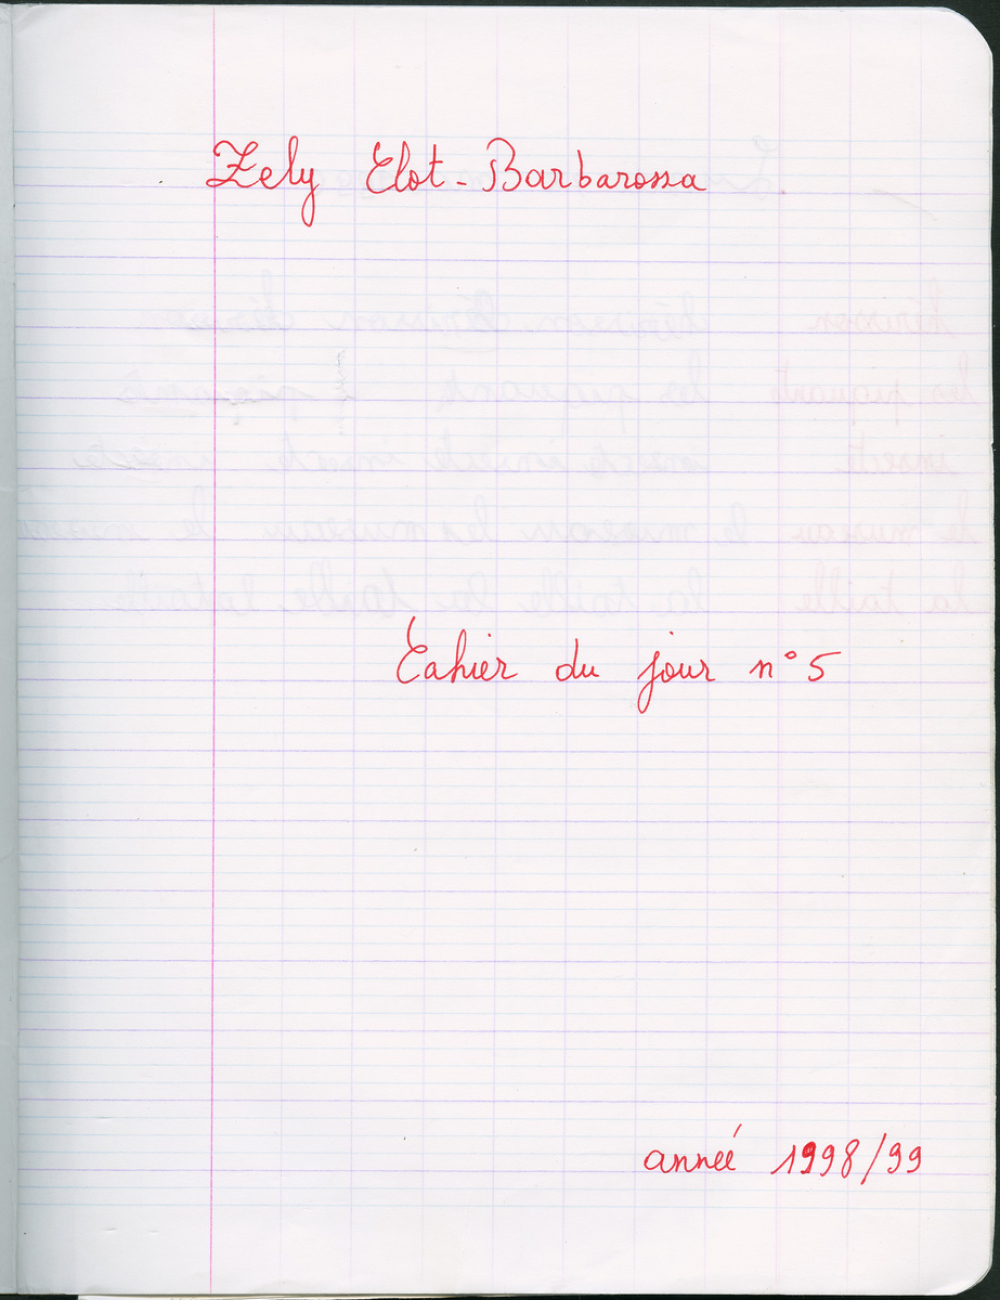 Zely Elot-Barbarossa
Cahier du jour n°5
année 1998/99